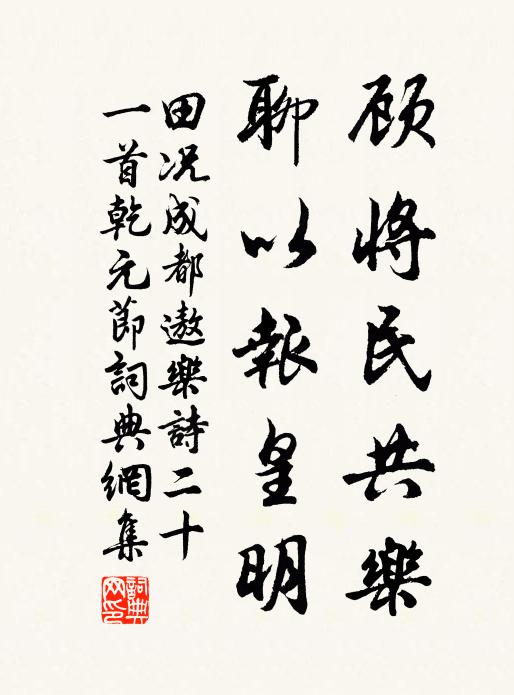 顾将民共樂
聊以報皇明
田况成都遨樂詩二十
一首乾元節詞典網集
詞典網印